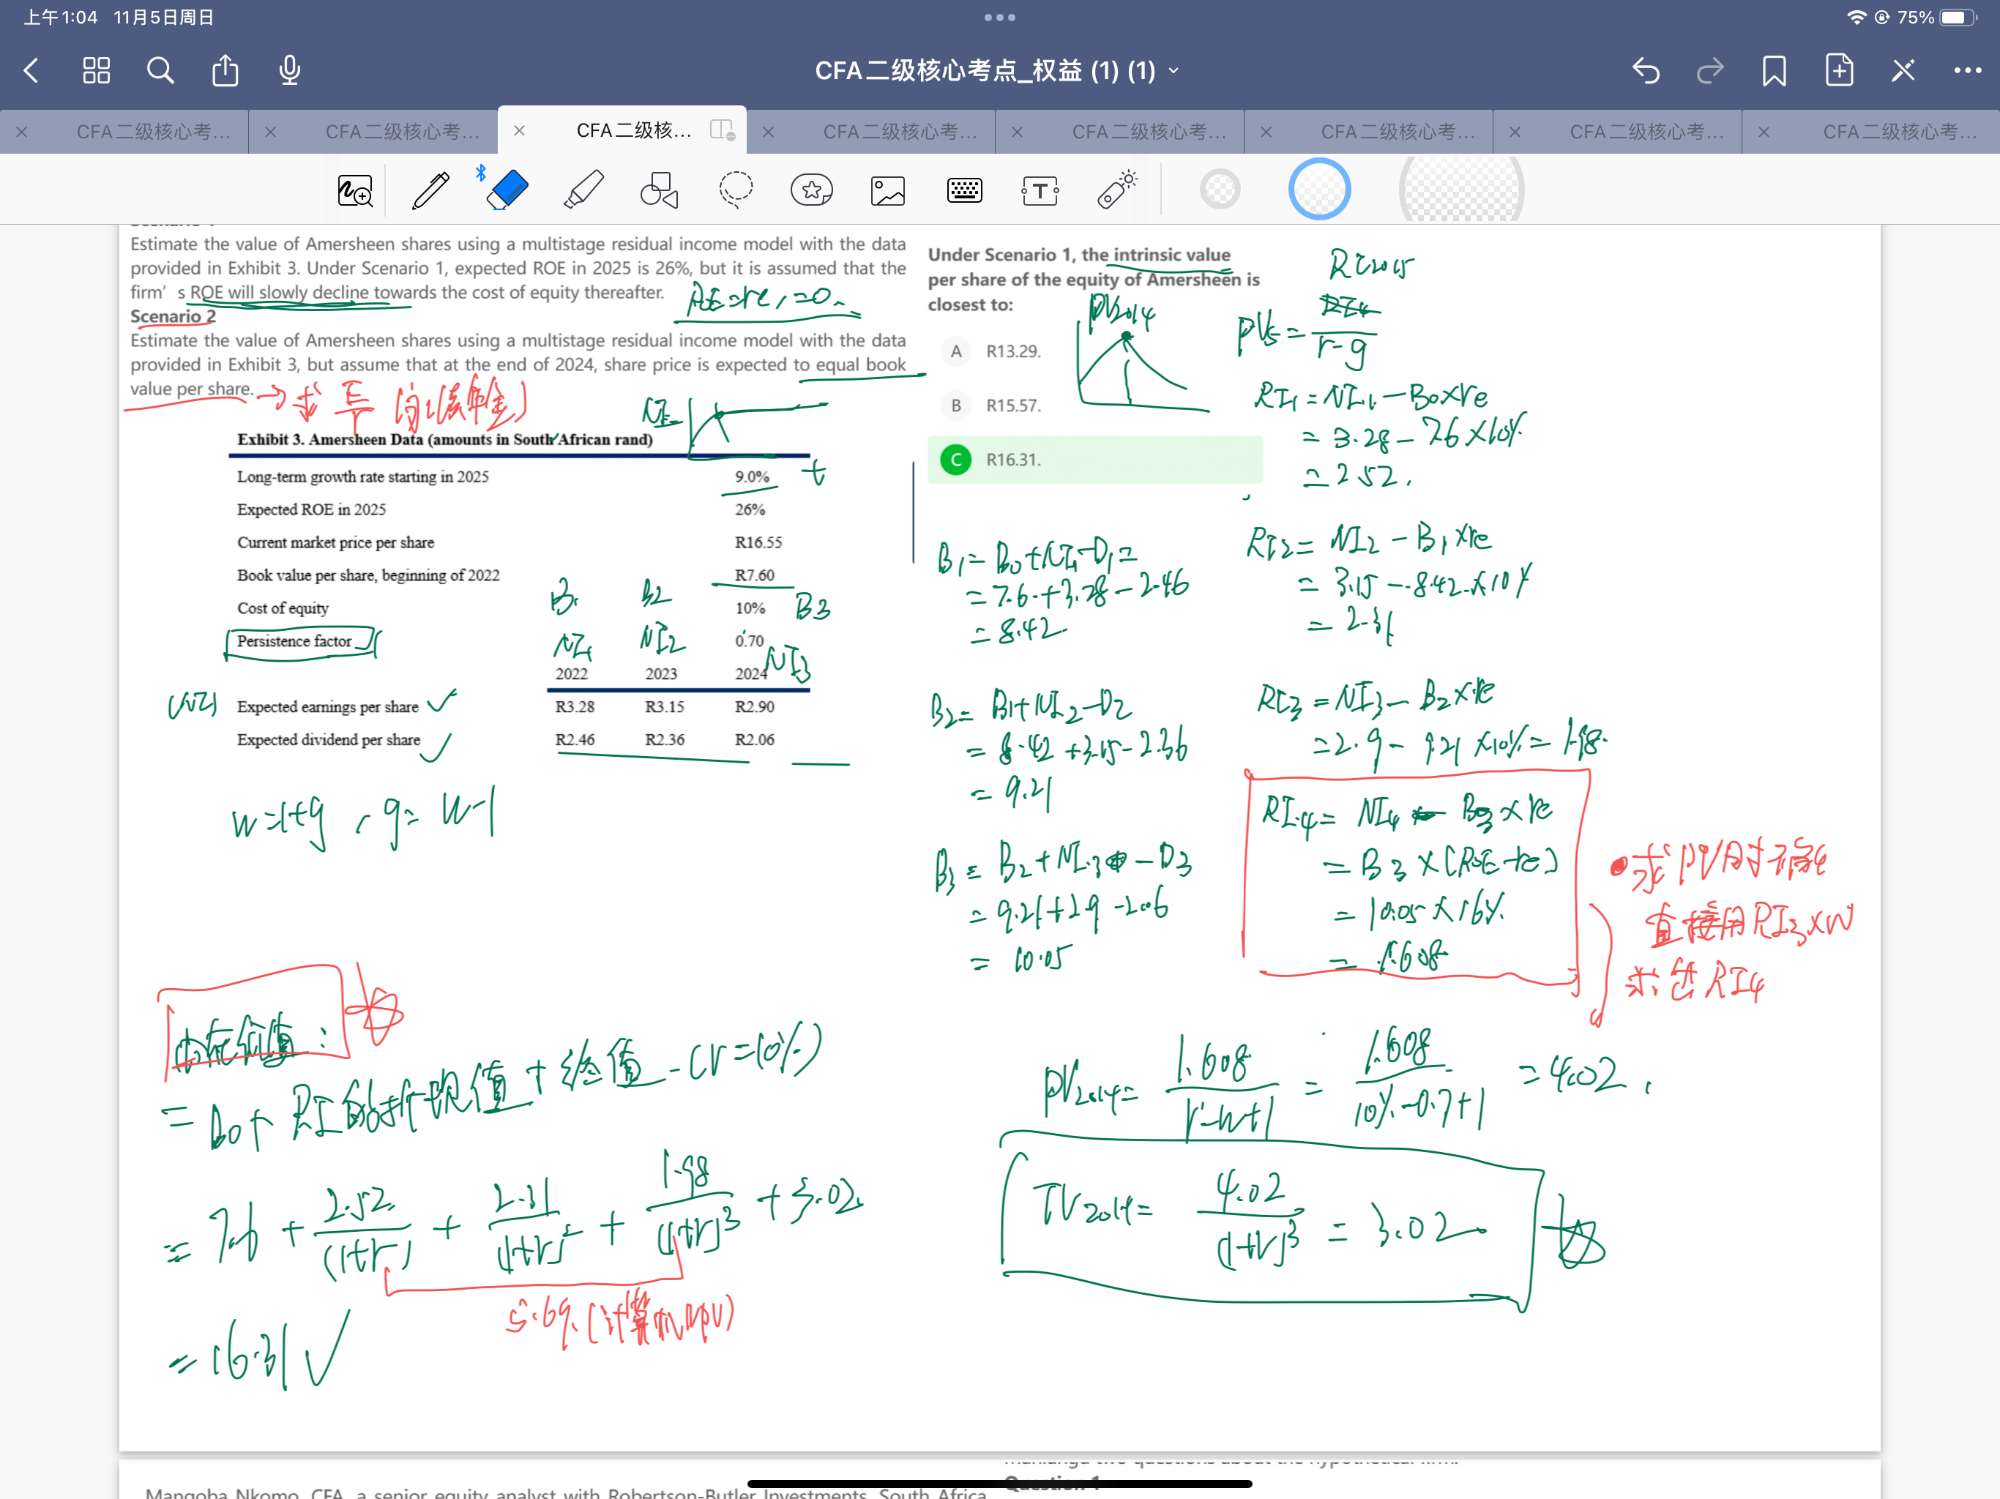 上午1:04 11月5日周日
75%
CFA二级核心考点_权益 (1) (1)
CFA二级核心考...
CFA二级核心考...
CFA二级核...
CFA二级核心考...
CFA二级核心考...
CFA二级核心考...
CFA二级核心考...
CFA二级核心考...
Estimate the value of Amersheen shares using a multistage residual income model with the data
provided in Exhibit 3. Under Scenario 1, expected ROE in 2025 is 26%, but it is assumed that the
firm's ROE will slowly decline towards the cost of equity thereafter.
Scenario 2
Estimate the value of Amersheen shares using a multistage residual income model with the data
provided in Exhibit 3, but assume that at the end of 2024, share price is expected to equal book
value per share.
Exhibit 3. Amersheen Data (amounts in South African rand)
t
Long-term growth rate starting in 2025 9.0%
Expected ROE in 2025 26%
Current market price per share R16.55
Book value per share, beginning of 2022 R7.60
B1 B2 B3
Cost of equity 10%
Persistence factor 0.70
NI1 NI2 NI3
2022 2023 2024
(NI) Expected earnings per share R3.28 R3.15 R2.90
Expected dividend per share R2.46 R2.36 R2.06
w=1+g , g= w-1
内在价值:
= B0+ RI的折现值+终值 - (r=10%)
= 7.6 + 2.52/(1+r) + 2.31/(1+r)² + 1.98/(1+r)³ + 3.02
5.69. (计算机NPV)
= 16.31 ✓
Under Scenario 1, the intrinsic value
per share of the equity of Amersheen is
closest to:
A R13.29.
B R15.57.
C R16.31.
PV2014
RI2015
PV5 = /r-g
RI1 = NI1 - B0×re
= 3.28 - 7.6×10%
= 2.52.
B1= B0+NI1-D1=
= 7.6+3.28-2.46
= 8.42
RI2= NI2 - B1×re
= 3.15 - 8.42×10%
= 2.31
B2= B1+NI2-D2
= 8.42+3.15-2.36
= 9.21
RI3 = NI3 - B2×re
= 2.9 - 9.21×10% = 1.98.
B3 = B2+NI3 - D3
= 9.21+2.9-2.06
= 10.05
RI4= NI4 - B3×re
= B3×(ROE-re)
= 10.05×16%
= 1.608
求PV时
直接用RI3×W
求出RI4
PV2014= 1.608/r-w+1 = 1.608/10%-0.7+1 = 4.02.
TV2014= 4.02/(1+r)³ = 3.02
Question 1
Mangoba Nkomo, CFA, a senior equity analyst with Robertson-Butler Investments, South Africa,